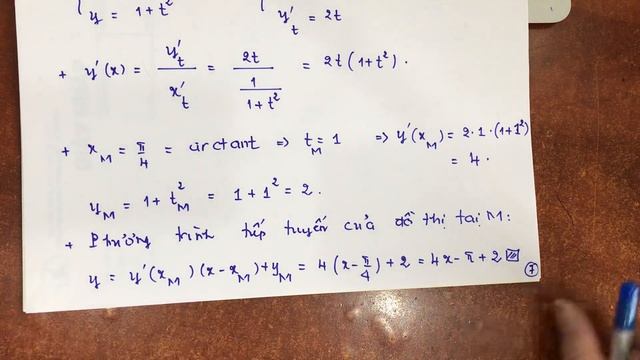 y = 1 + t²
y't = 2t
+ y'(x) = y't / x't = 2t / (1 / (1 + t²)) = 2t (1 + t²).
+ xM = π/4 = arctant ⇒ tM = 1 ⇒ y'(xM) = 2.1.(1+1²)
= 4.
yM = 1 + tM² = 1 + 1² = 2.
+ Phương trình tiếp tuyến của đồ thị tại M:
y = y'(xM)(x - xM) + yM = 4(x - π/4) + 2 = 4x - π + 2
7